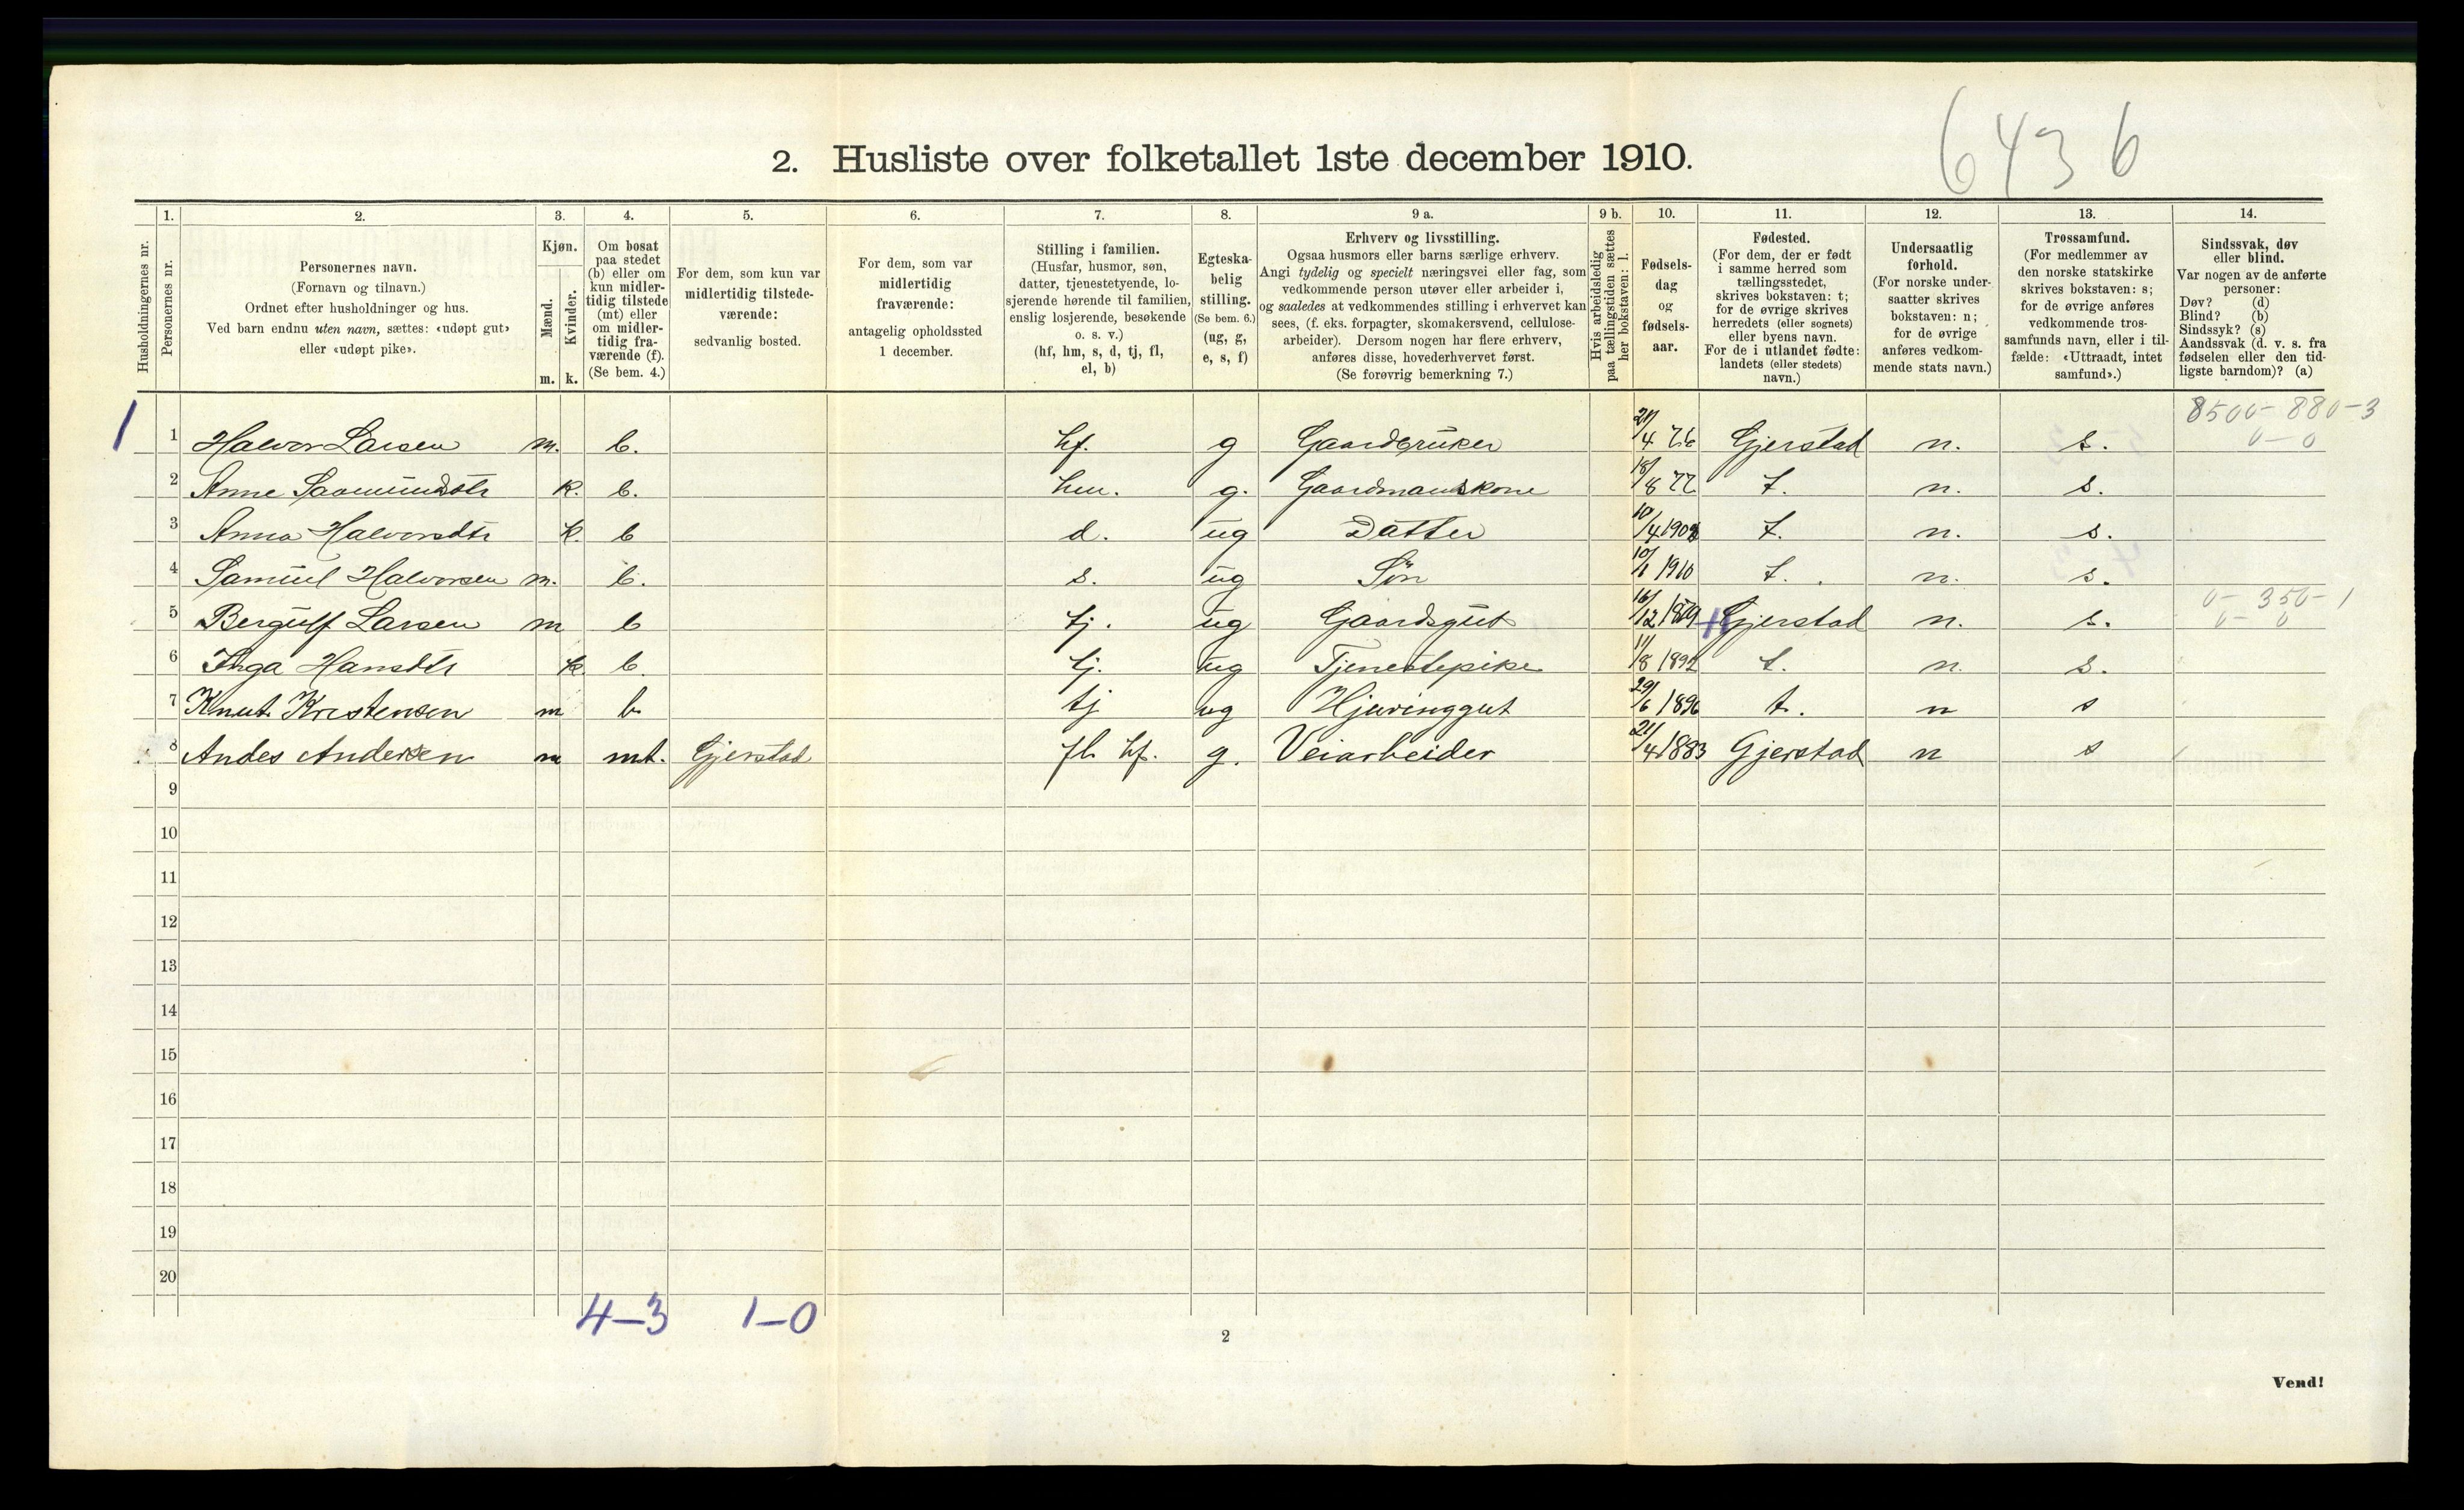 6436
2. Husliste over folketallet 1ste december 1910.
Husholdningernes nr.
1. Personernes nr.
2. Personernes navn.
(Fornavn og tilnavn.)
Ordnet efter husholdninger og hus.
Ved barn endnu uten navn, sættes: «udøpt gut»
eller «udøpt pike».
3. Kjøn.
Mænd. m.
Kvinder. k.
4. Om bosat
paa stedet
(b) eller om
kun midler-
tidig tilstede
(mt) eller
om midler-
tidig fra-
værende (f).
(Se bem. 4.)
5. For dem, som kun var
midlertidig tilstede-
værende:
sedvanlig bosted.
6. For dem, som var
midlertidig
fraværende:
antagelig opholdssted
1 december.
7. Stilling i familien.
(Husfar, husmor, søn,
datter, tjenestetyende, lo-
sjerende hørende til familien,
enslig losjerende, besøkende
o. s. v.)
(hf, hm, s, d, tj, fl,
el, b)
8. Egteska-
belig
stilling.
(Se bem. 6.)
(ug, g,
e, s, f)
9 a. Erhverv og livsstilling.
Ogsaa husmors eller barns særlige erhverv.
Angi tydelig og specielt næringsvei eller fag, som
vedkommende person utøver eller arbeider i,
og saaledes at vedkommendes stilling i erhvervet kan
sees, (f. eks. forpagter, skomakersvend, cellulose-
arbeider). Dersom nogen har flere erhverv,
anføres disse, hovederhvervet først.
(Se forøvrig bemerkning 7.)
9 b. Hvis arbeidsledig
paa tællingstiden sættes
her bokstaven: l.
10. Fødsels-
dag
og
fødsels-
aar.
11. Fødested.
(For dem, der er født
i samme herred som
tællingsstedet,
skrives bokstaven: t;
for de øvrige skrives
herredets (eller sognets)
eller byens navn.
For de i utlandet fødte:
landets (eller stedets)
navn.)
12. Undersaatlig
forhold.
(For norske under-
saatter skrives
bokstaven: n;
for de øvrige
anføres vedkom-
mende stats navn.)
13. Trossamfund.
(For medlemmer av
den norske statskirke
skrives bokstaven: s;
for de øvrige anføres
vedkommende tros-
samfunds navn, eller i til-
fælde: «Uttraadt, intet
samfund».)
14. Sindssvak, døv
eller blind.
Var nogen av de anførte
personer:
Døv? (d)
Blind? (b)
Sindssyk? (s)
Aandssvak (d. v. s. fra
fødselen eller den tid-
ligste barndom)? (a)
8500-880-3
1 1 Halvor Larsen m. b. hf. g Gaardbruker 4 76 Gjerstad n. s. 0-0
2 Anne Saamundsdtr k. b. hm. g. Gaardmandskone 18/8 77 t. n. s.
3 Anna Halvorsdtr k. b d. ug Datter 10/4 190 t. n. s.
4 Samuel Halvorsen m. b. s. ug Søn 10/1 1910 t. n. s.
0-350-1
5 Bergulf Larsen m b tj. ug Gaardsgut 16/12 1879 Gjerstad n. s. 0-0
6 Inga Hansdtr k. b. tj. ug Tjenestepike 11/8 1892 t. n. s.
7 Knut Kristensen m b. tj ug Hjuringgut 29/6 1896 t. n s
8 Andes Andersen m mt. Gjerstad fl hf. g. Veiarbeider 21/4 1883 Gjerstad n s
9
10
11
12
13
14
15
16
17
18
19
20
4-3 1-0
2
Vend!